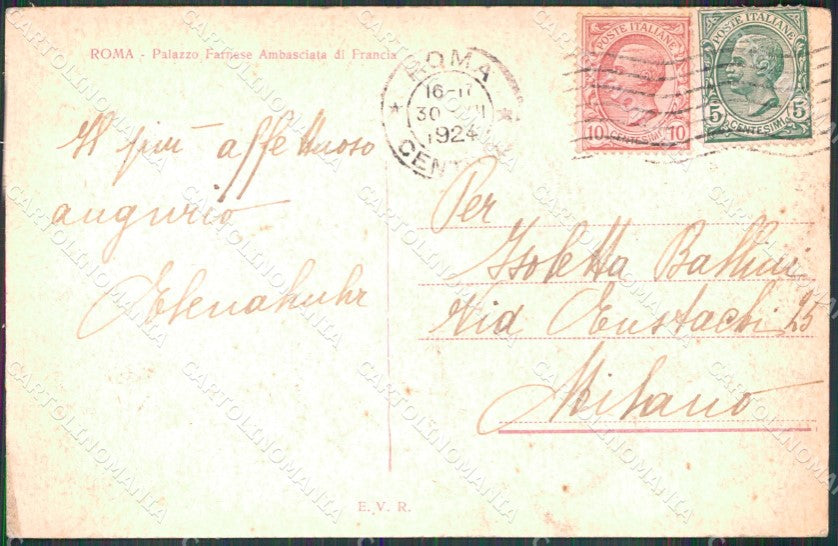 ROMA - Palazzo Farnese Ambasciata di Francia
ROMA
16-17
30 II
1924
CENT
POSTE ITALIANE
10 CENTESIMI 10
POSTE ITALIANE
5 CENTESIMI 5
Il più affettuoso
augurio
Elenakuhr
Per
Isoletta Ballini
Via Eustachi 25
Milano
E. V. R.
CARTOLINOMANIA